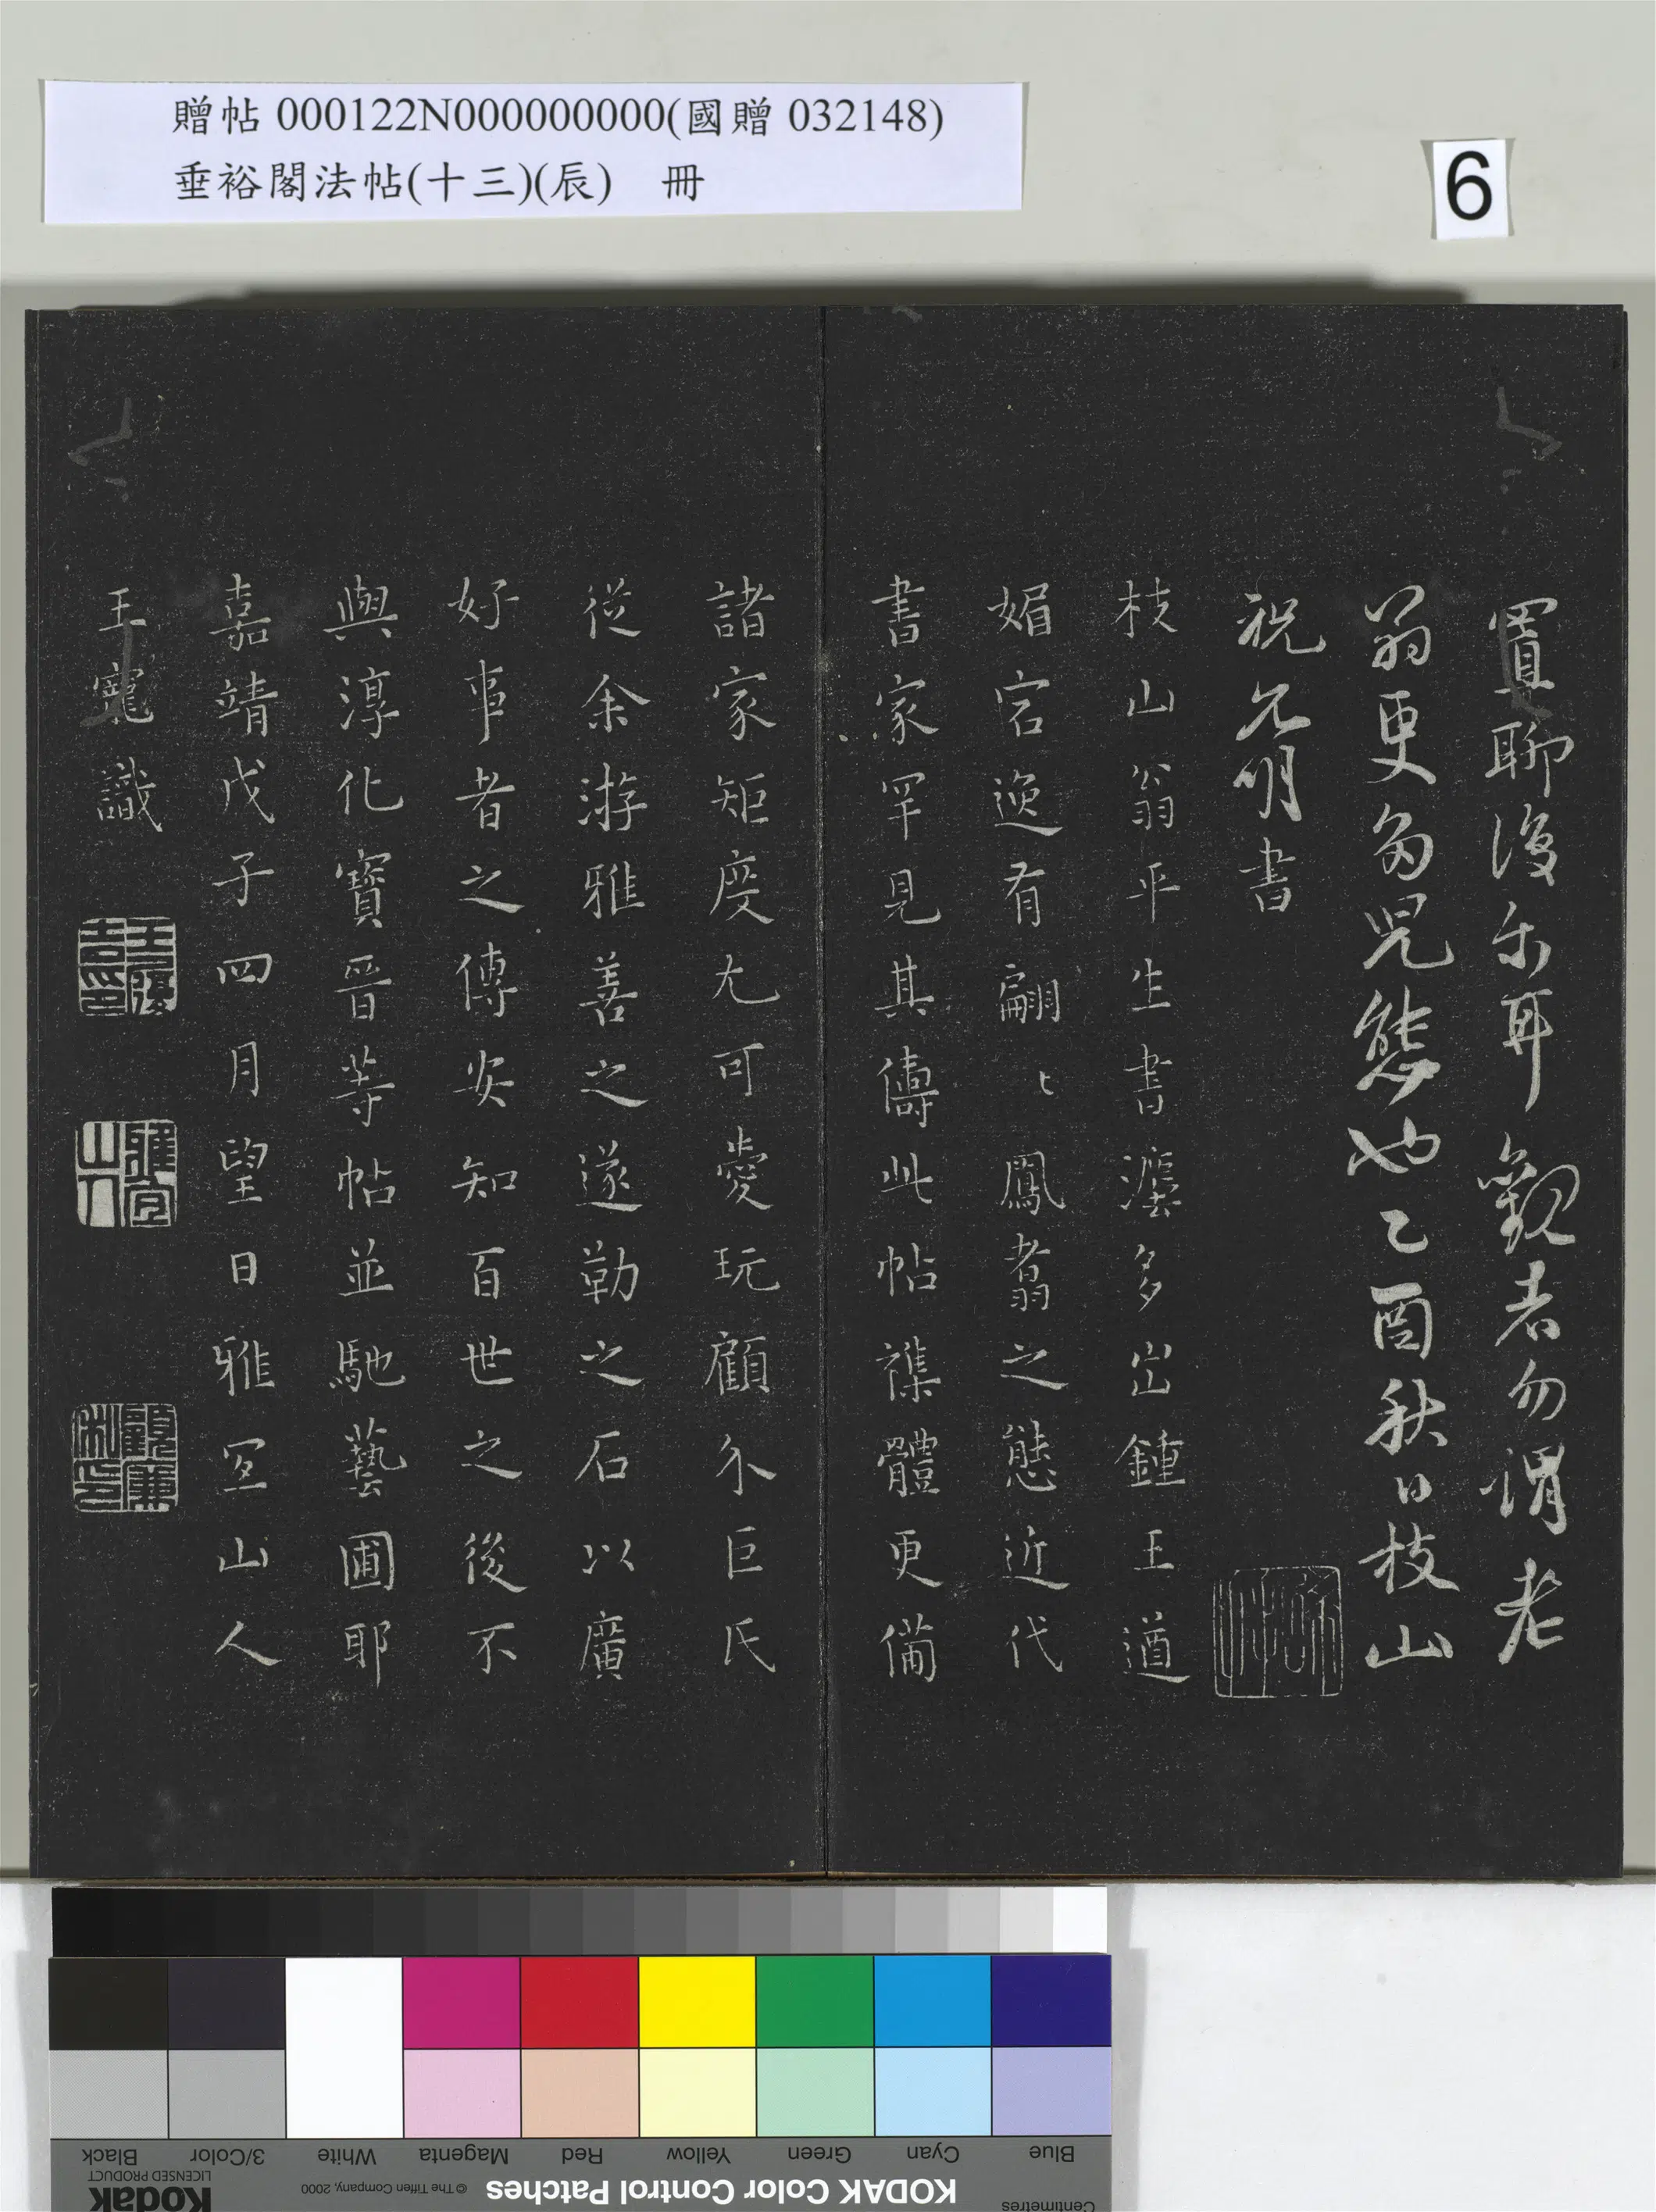 贈帖 000122N000000000(國贈 032148)
垂裕閣法帖(十三)(辰) 冊
6
置聊復尔耳觀者勿謂老
翁更多兒態也乙酉秋日枝山
祝允明書
枝山翁平生書瀍多出鍾王遒
媚宕逸有翩〻鳳翥之態近代
書家罕見其傳此帖襍體更備
諸家矩度尤可愛玩顧介巨氏
從余游雅善之遂勒之石以廣
好事者之傳安知百世之後不
與淳化寶晉等帖並馳藝圃耶
嘉靖戊子四月望日雅宜山人
王寵識
王履吉印
雅宜山人
Blue Cyan Green Yellow Red Magenta White 3/Color Black
KODAK Color Control Patches
© The Tiffen Company, 2000
Kodak
LICENSED PRODUCT
Centimetres